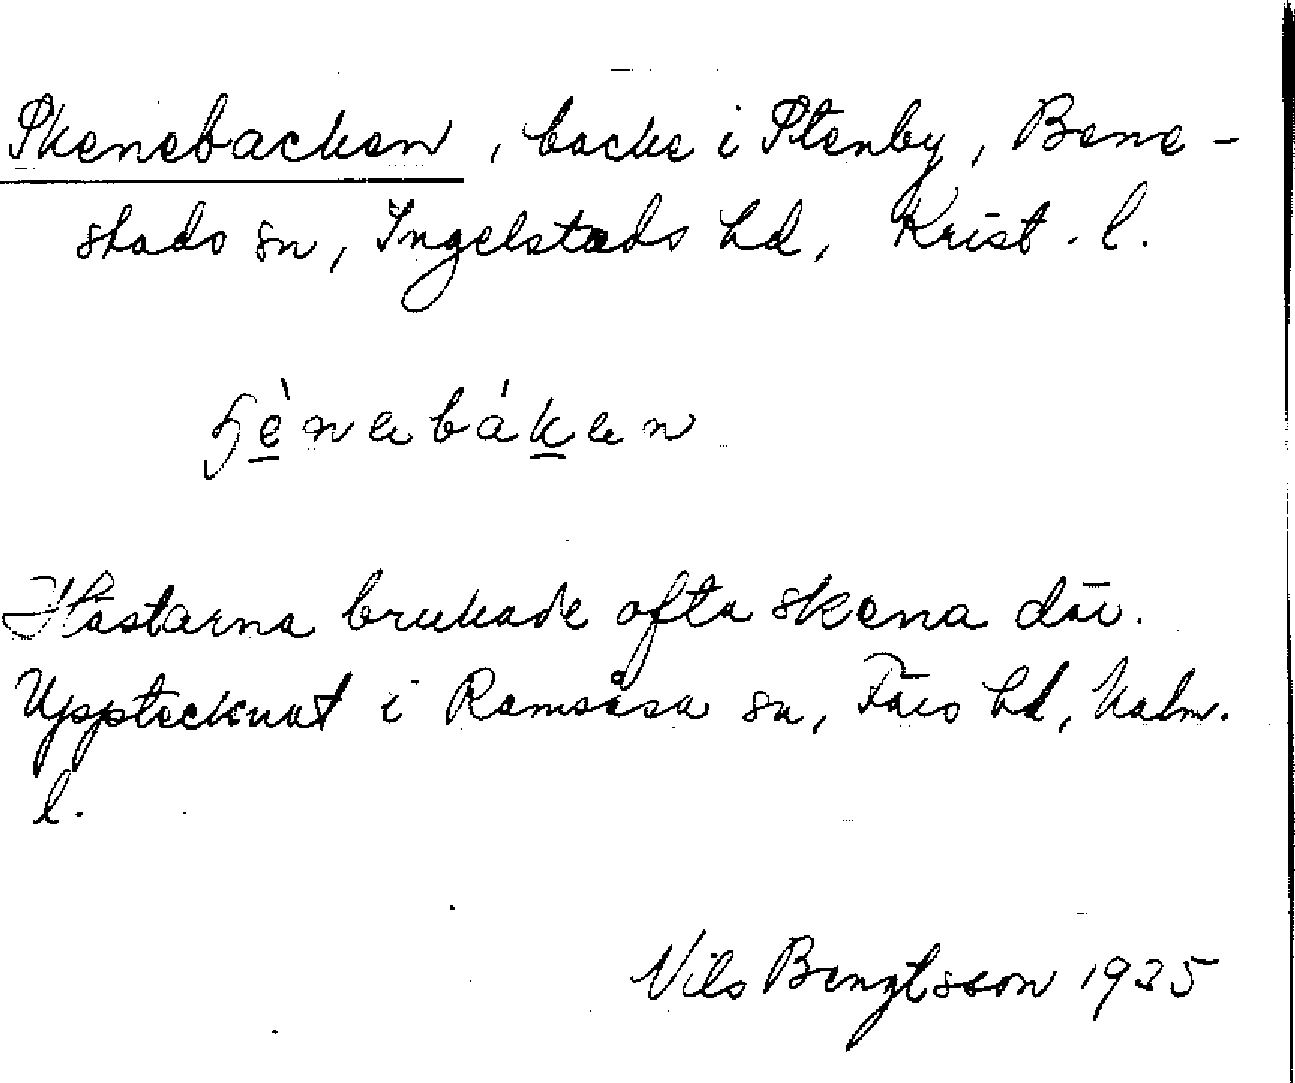 Skenebacken, backe i Stenby, Bene-
stads sn, Ingelstads hd, Krist. l.
ɧènəbákən
Hästarna brukade ofta skena där.
Upptecknat i Ramsåsa sn, Färs hd, Malm.
l.
Nils Bengtsson 1935